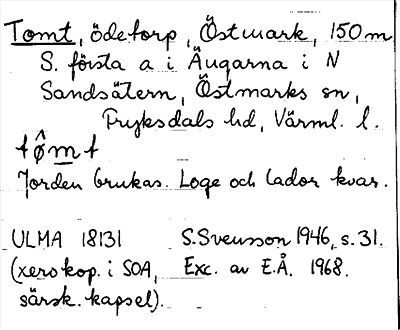 Tomt, ödetorp, Östmark, 150 m
S. första a i Ängarna i N
Sandsätern, Östmarks sn,
Fryksdals hd, Värml. l.
tø̂mt
Jorden brukas. Loge och lador kvar.
ULMA 18131 S. Svensson 1946, s. 31.
(xerokop. i SOA, Exc. av E.Å. 1968.
särsk. kapsel).